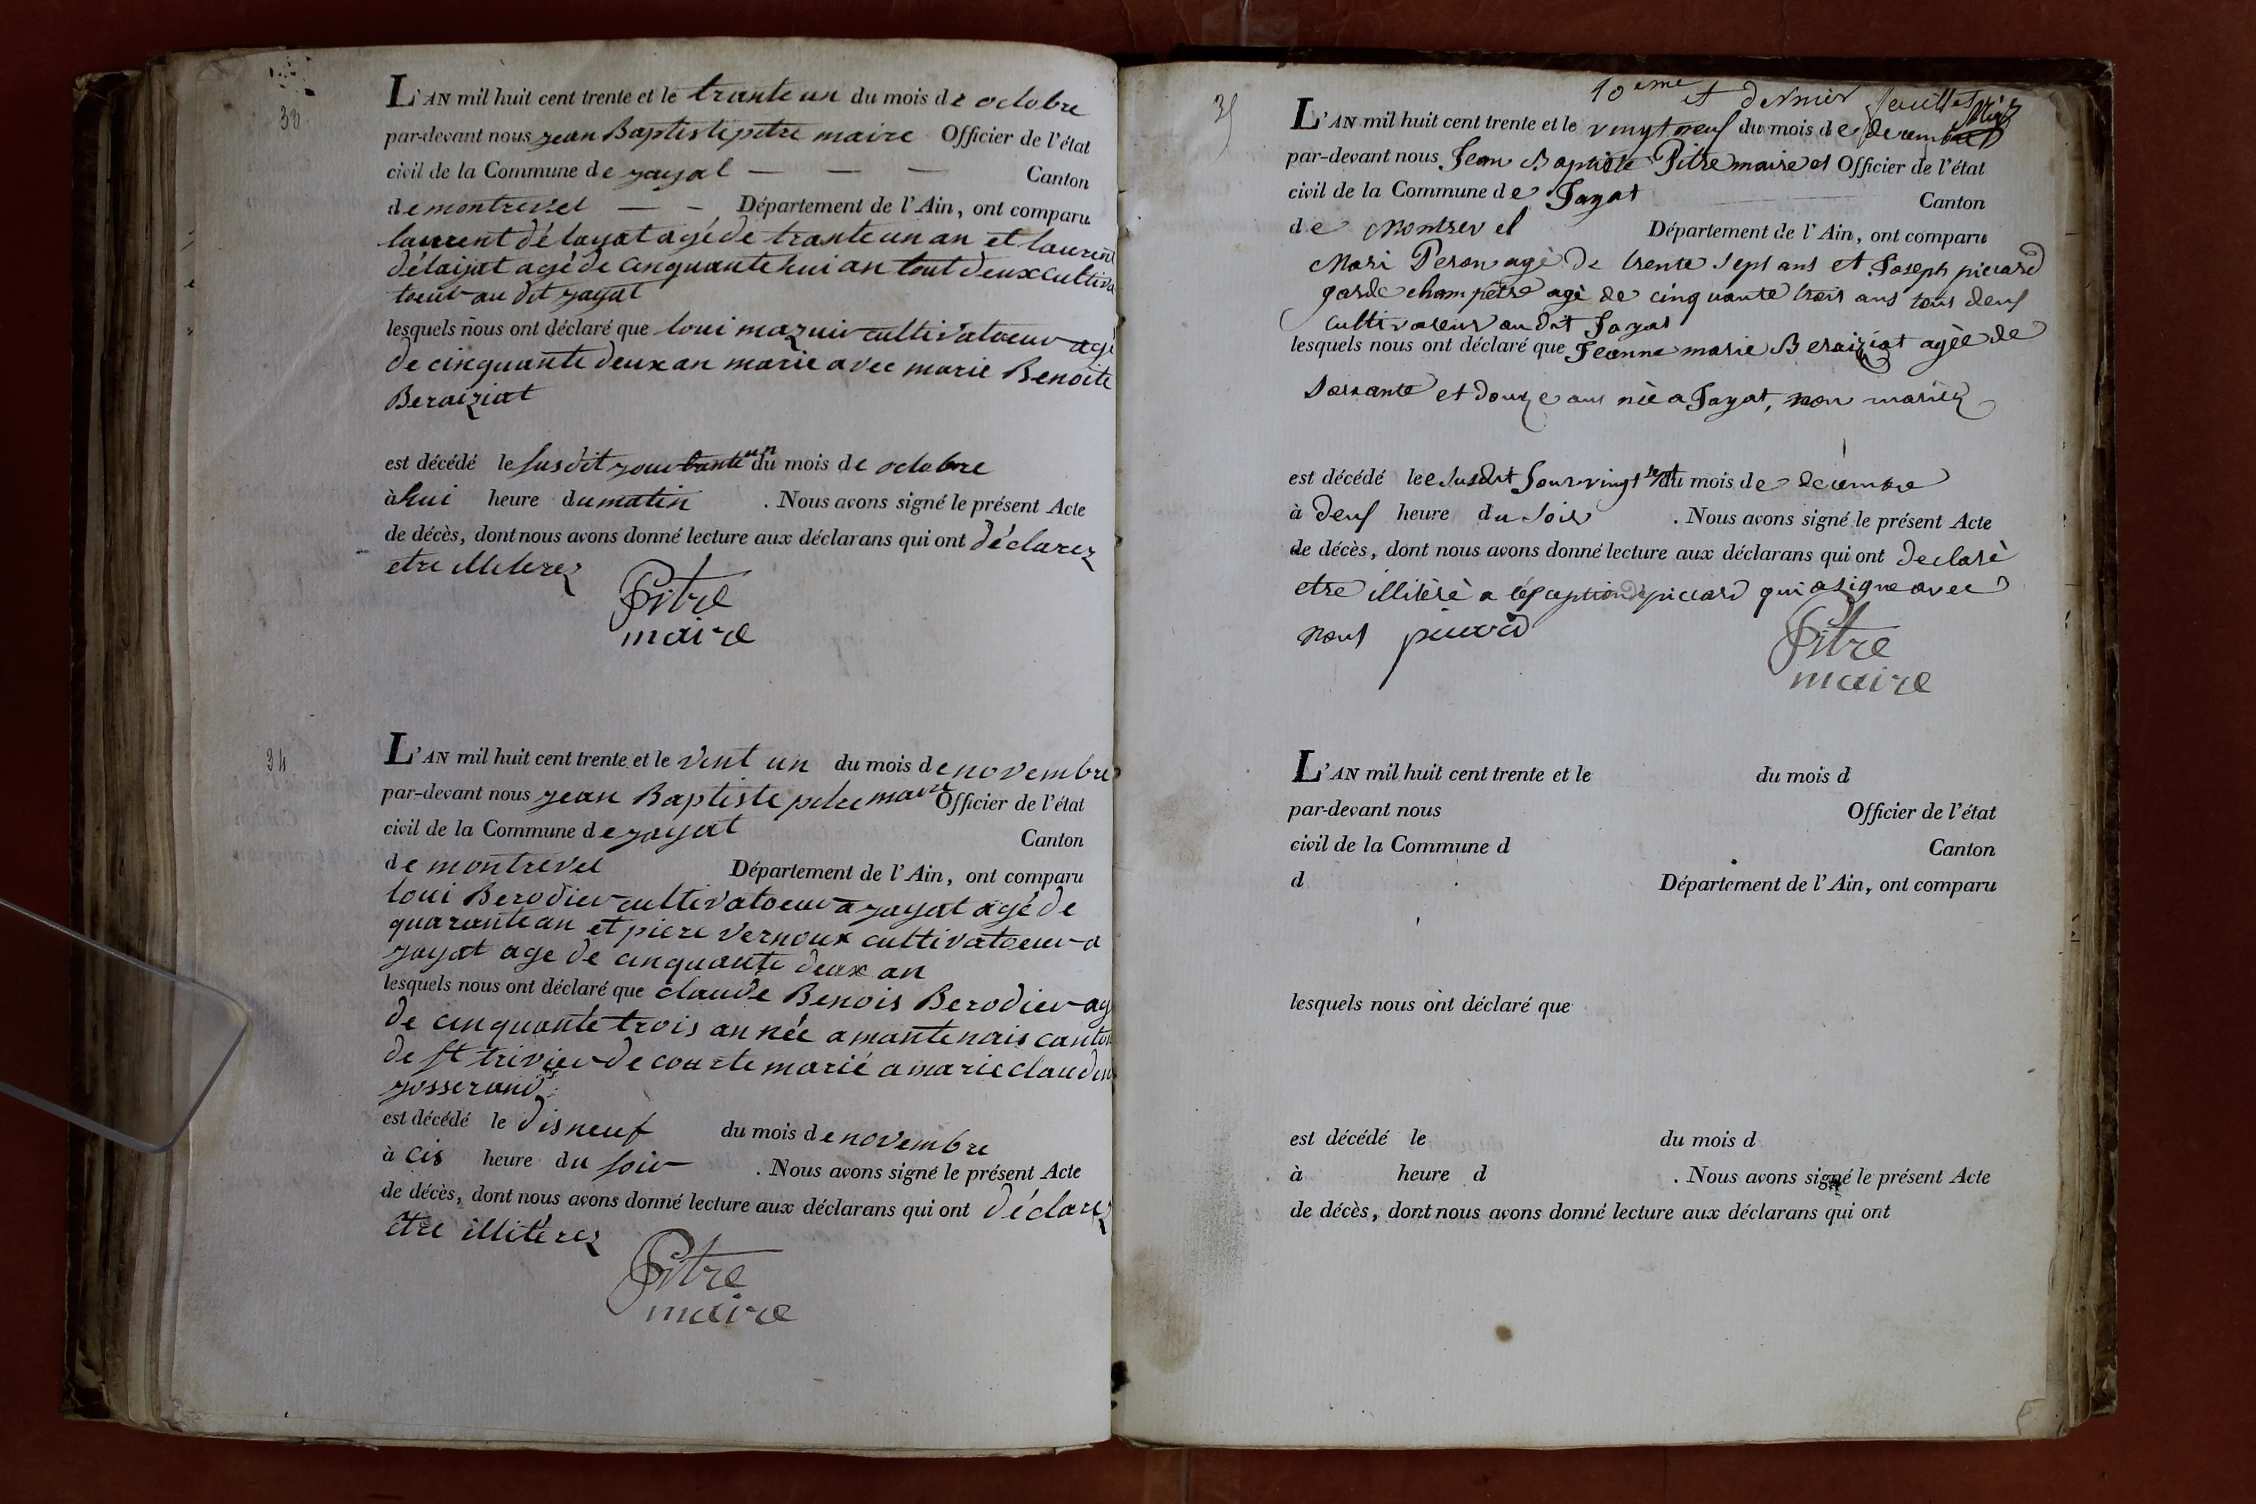 33
L'AN mil huit cent trente et le trante un du mois de octobre
par-devant nous jean Baptiste pitre maire Officier de l'état
civil de la Commune de jayat — — — Canton
de montrevel — — Département de l'Ain, ont comparu
laurent délayat agé de trante un an et laurent
délaijat agé de cinquante hui an tout deux cultiva
toeur au dit jayat
lesquels nous ont déclaré que loui mazuir cultivatoeur agé
de cinquante deux an marie avec marie Benoite
Beraiziat
est décédé le susdit jour trante un du mois de octobre
à hui heure du matin . Nous avons signé le présent Acte
de décès, dont nous avons donné lecture aux déclarans qui ont déclarez
etre illiterez
Pitre
maire
34
L'AN mil huit cent trente et le vent un du mois de novembre
par-devant nous jean Baptiste pitre maire Officier de l'état
civil de la Commune de jayat Canton
de montrevel Département de l'Ain, ont comparu
loui Berodier cultivatoeur a jayat agé de
quarante an et piere vernoux cultivatoeur a
jayat age de cinquante deux an
lesquels nous ont déclaré que claude Benois Berodier ag
de cinquante trois an née a mantenais canton
de st trivier de courte marié a marie claudin
josserand
est décédé le disneuf du mois de novembre
à cis heure du soir . Nous avons signé le présent Acte
de décès, dont nous avons donné lecture aux déclarans qui ont déclarez
etre illiterez
Pitre
maire
10eme et dernier feuillet
35
L'AN mil huit cent trente et le vingt neuf du mois de decembre
par-devant nous Jean Baptiste Pitre maire et Officier de l'état
civil de la Commune de Jayat Canton
de Montrevel Département de l'Ain, ont comparu
Mari Peron agè de trente sept ans et Joseph piccard
garde champêtre agè de cinquante trois ans tous deus
cultivateur au dit Jayat
lesquels nous ont déclaré que Jeanne marie Beraiziat agèe de
soixante et douze ans nèe a Jayat, non mariée
est décédé le susdit Jour vingt neuf du mois de decembre
à deus heure du soir . Nous avons signé le présent Acte
de décès, dont nous avons donné lecture aux déclarans qui ont declarè
etre illiterè a l'eception de piccard qui a signe avec
nous piccard
Pitre
maire
L'AN mil huit cent trente et le du mois d
par-devant nous Officier de l'état
civil de la Commune d Canton
d Département de l'Ain, ont comparu
lesquels nous ont déclaré que
est décédé le du mois d
à heure d . Nous avons signé le présent Acte
de décès, dont nous avons donné lecture aux déclarans qui ont